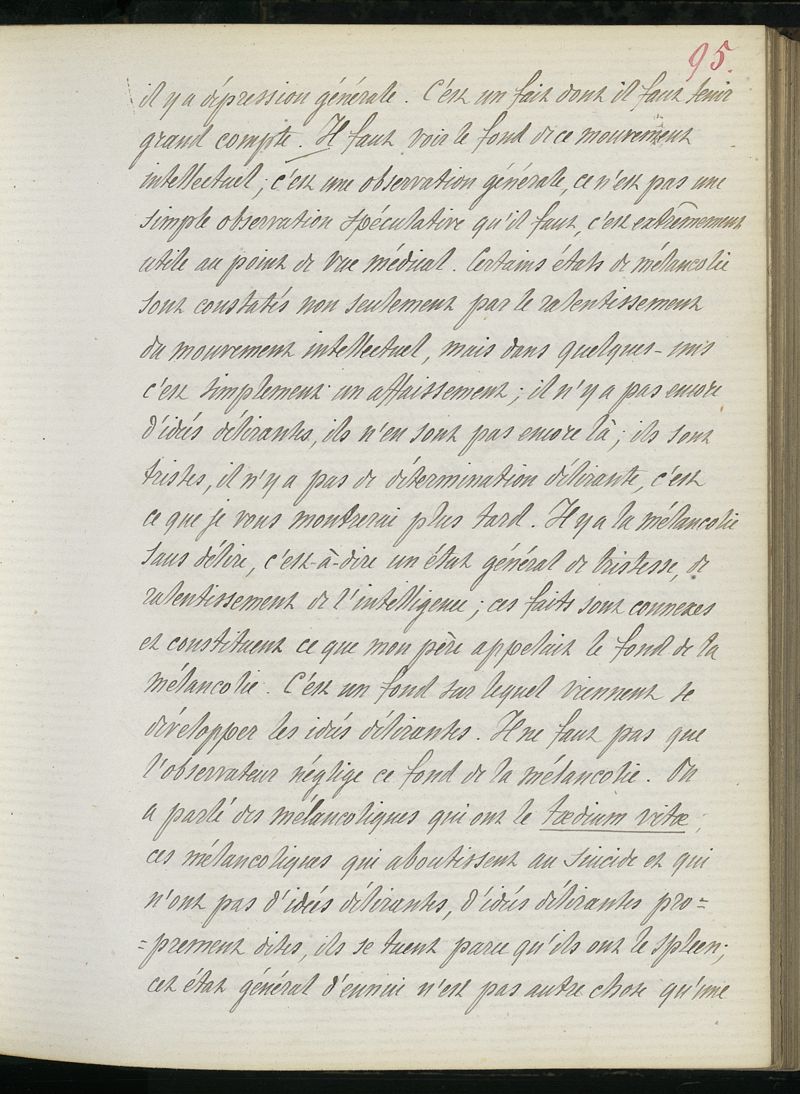 95.
il y a dépression générale. C'est un fait dont il faut tenir
grand compte. Il faut voir le fond de ce mouvement
intellectuel; c'est une observation générale, ce n'est pas une
simple observation spéculative qu'il faut, c'est extrêmement
utile au point de vue médical. Certains états de mélancolie
sont constatés non seulement par le ralentissement
du mouvement intellectuel, mais dans quelques-uns
c'est simplement un affaissement; il n'y a pas encore
d'idées délirantes, ils n'en sont pas encore là; ils sont
tristes, il n'y a pas de détermination délirante, c'est
ce que je vous montrerai plus tard. Il y a la mélancolie
sans délire, c'est-à-dire un état général de tristesse, de
ralentissement de l'intelligence; ces faits sont connexes
et constituent ce que mon père appelait le fond de la
mélancolie. C'est un fond sur lequel viennent se
développer les idées délirantes. Il ne faut pas que
l'observateur néglige ce fond de la mélancolie. On
a parlé des mélancoliques qui ont le tædium vitæ;
ces mélancoliques qui aboutissent au suicide et qui
n'ont pas d'idées délirantes, d'idées délirantes pro=
=prement dites, ils se tuent parce qu'ils ont le spleen;
cet état général d'ennui n'est pas autre chose qu'une